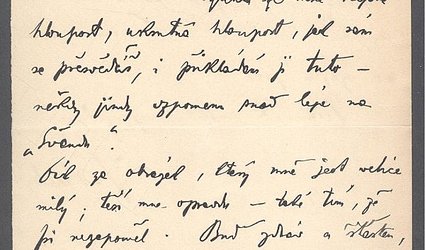 hloupost, ukrutná hloupost, jak sám
se přesvědčíš, i přikládám ji tuto –
někdy jindy vzpomenu snad lépe na
„Švandu".
Dík za obrázek, který mně jest velice
milý, těší mne opravdu – také tím, že
jsi nezapoměl. Buď zdráv a šťasten,